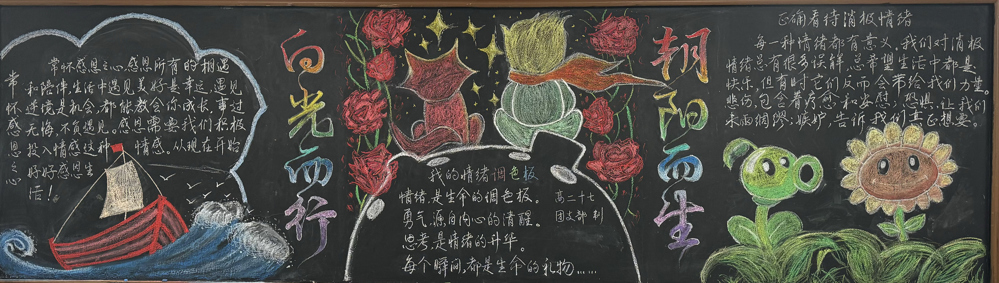 常怀感恩之心
常怀感恩之心,感恩所有的相遇
和陪伴,生活中遇见美好是幸运,遇见
逆境是机会,都能教会你成长,事过
无悔,不负遇见。感恩需要我们积极
投入情感这种情感。从现在开始
好好感恩生
活!
向光而行
朝阳而生
我的情绪调色板
情绪,是生命的调色板。
勇气,源自内心的清醒。
思考,是情绪的升华。
每个瞬间,都是生命的礼物……
高二十七
团支部制
正确看待消极情绪
每一种情绪都有意义,我们对消极
情绪总有很多误解,总希望生活中都是
快乐,但有时它们反而会带给我们力量。
悲伤,包含着疗愈和安慰;恐惧,让我们
未雨绸缪;嫉妒,告诉我们真正想要。